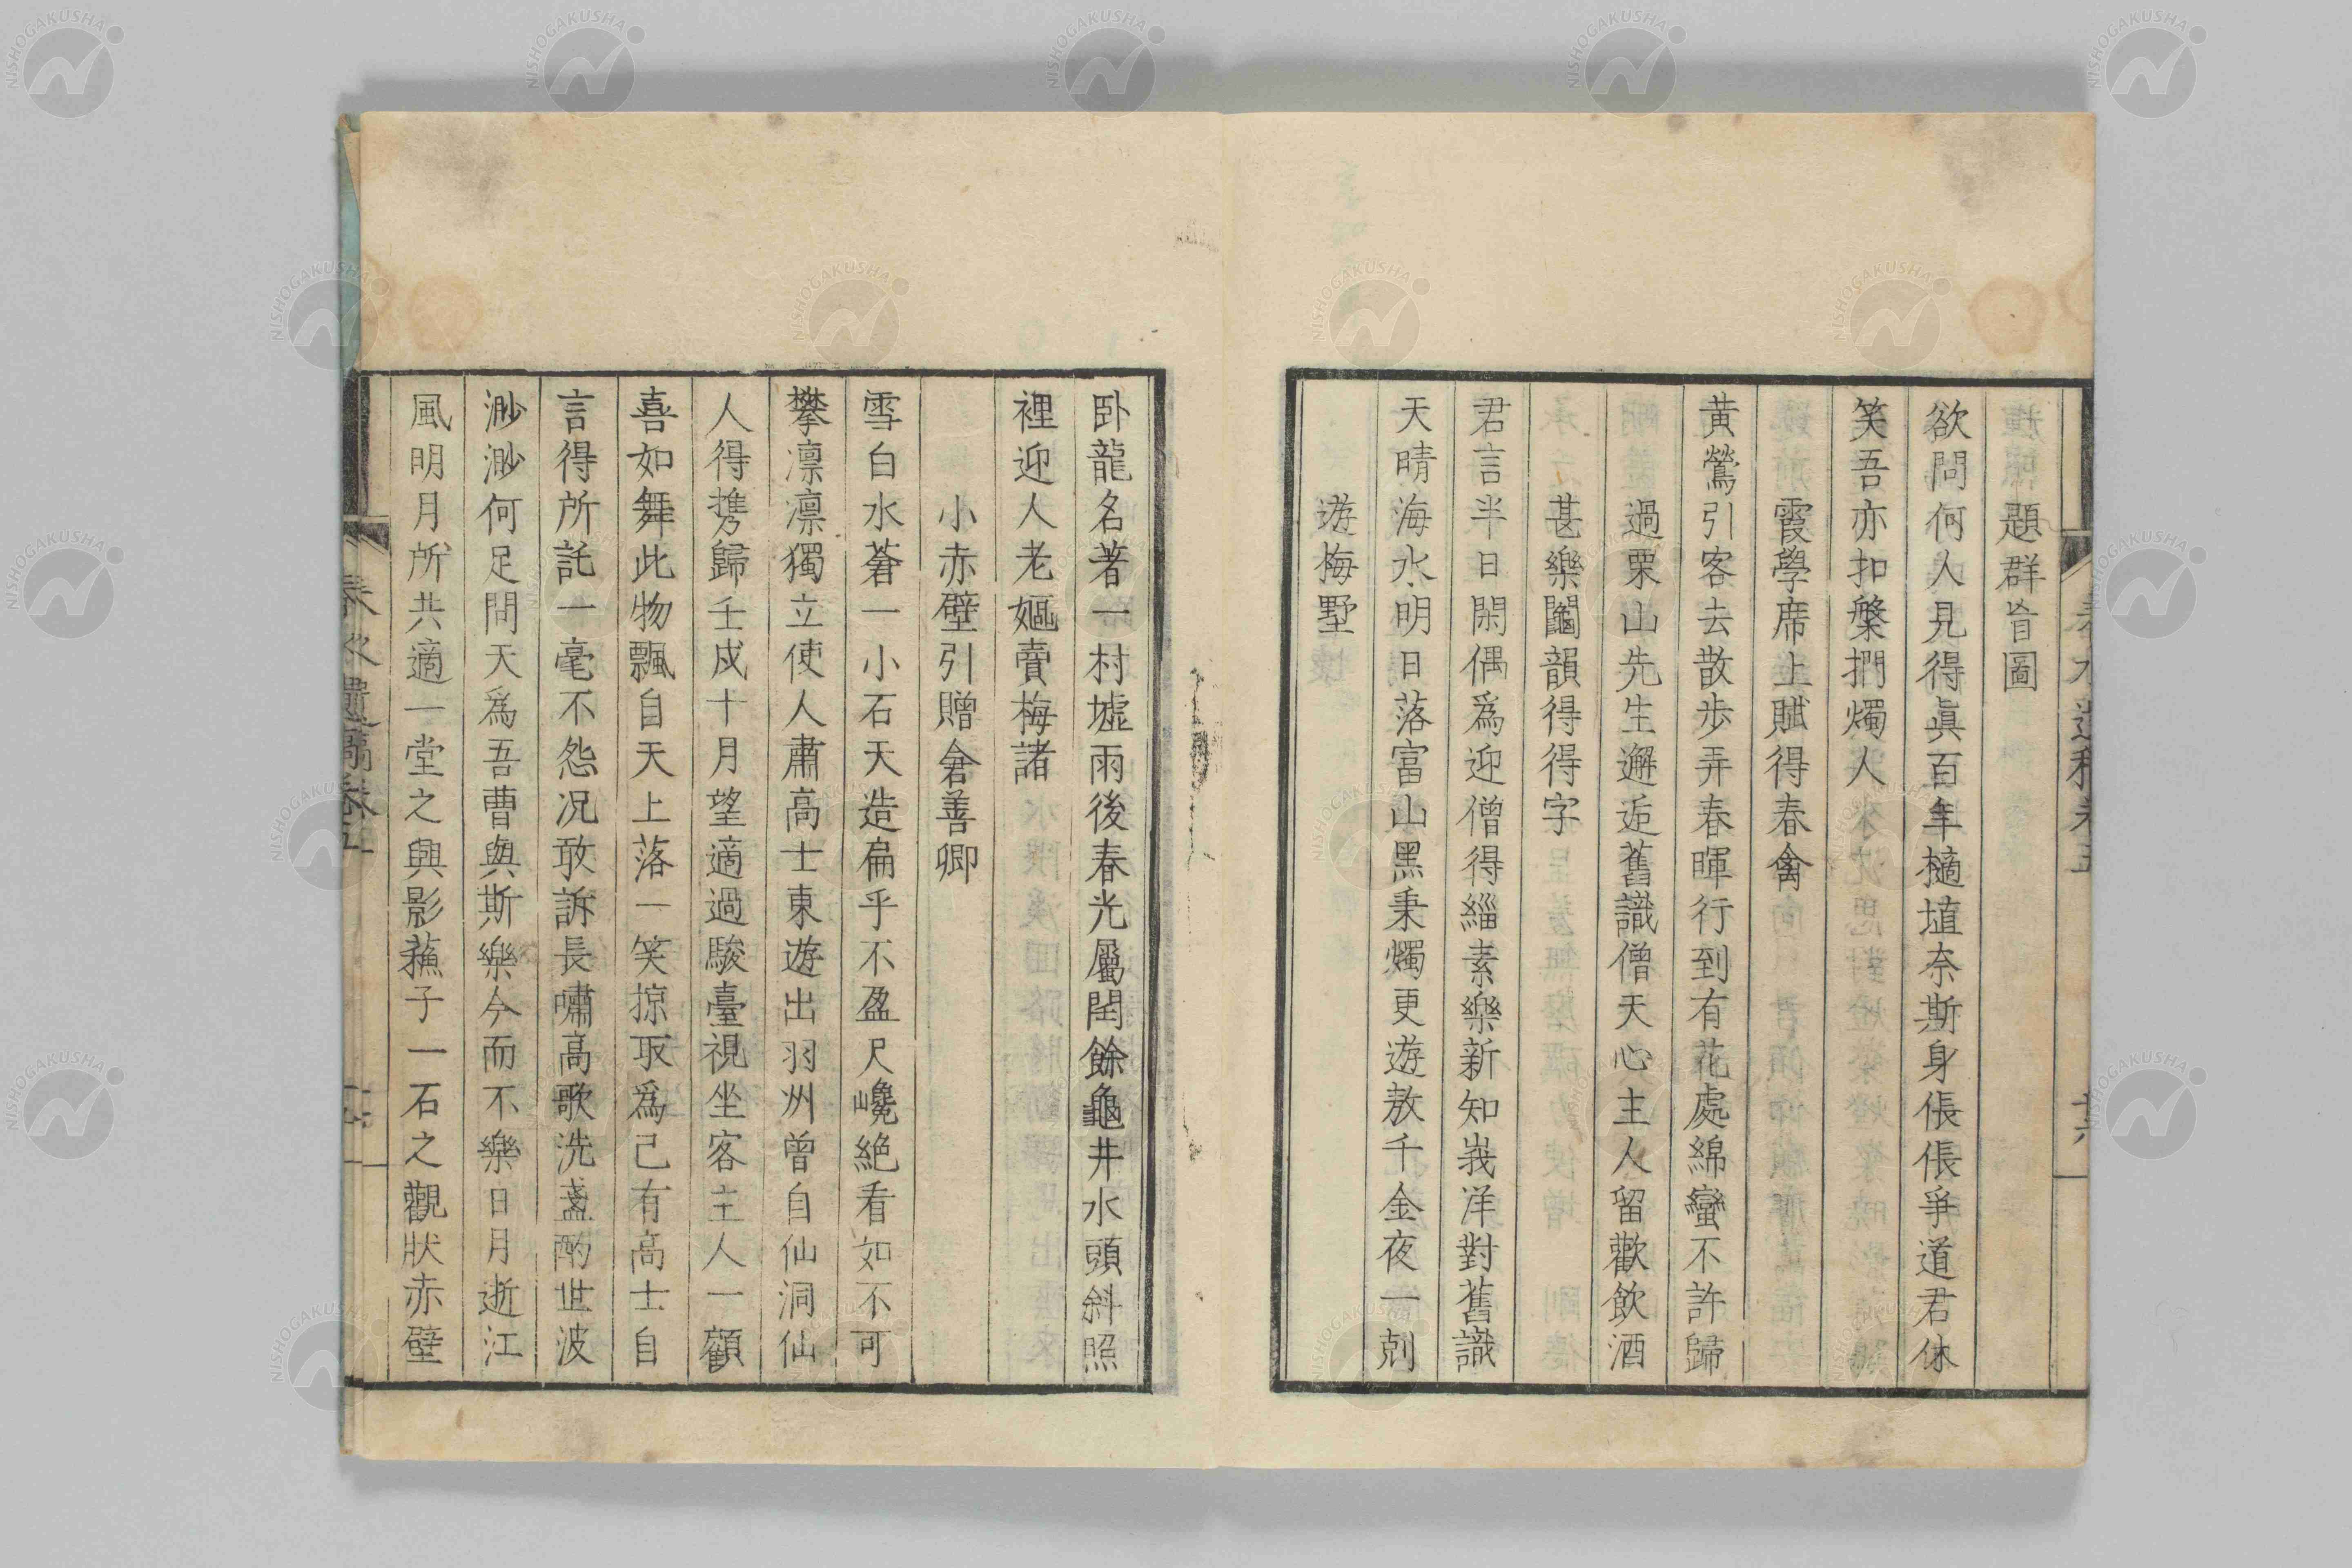 題群盲圖
欲問何人見得眞百年擿埴奈斯身倀倀爭道君休
笑吾亦扣槃捫燭人
霞學席上賦得春禽
黄鶯引客去散歩弄春暉行到有花處綿蠻不許歸
過栗山先生邂逅舊識僧天心主人留歡飲酒
甚樂鬮韻得得字
君言半日閑偶爲迎僧得緇素樂新知峩洋對舊識
天晴海水明日落富山黑秉燭更遊敖千金夜一剋
遊梅墅
卧龍名著一村墟雨後春光屬閏餘龜井水頭斜照
裡迎人老嫗賣梅諸
小赤壁引贈倉善卿
雪白水蒼一小石天造扁乎不盈尺巉絶看如不可
攀凛凛獨立使人肅高士東遊出羽州曾自仙洞仙
人得携歸壬戌十月望適過駿臺視坐客主人一顧
喜如舞此物飄自天上落一笑掠取爲己有高士自
言得所託一毫不怨况敢訴長嘯高歌洗盞酌世波
渺渺何足問天爲吾曹與斯樂今而不樂日月逝江
風明月所共適一堂之興影蘓子一石之觀狀赤壁
春水遺稿卷五